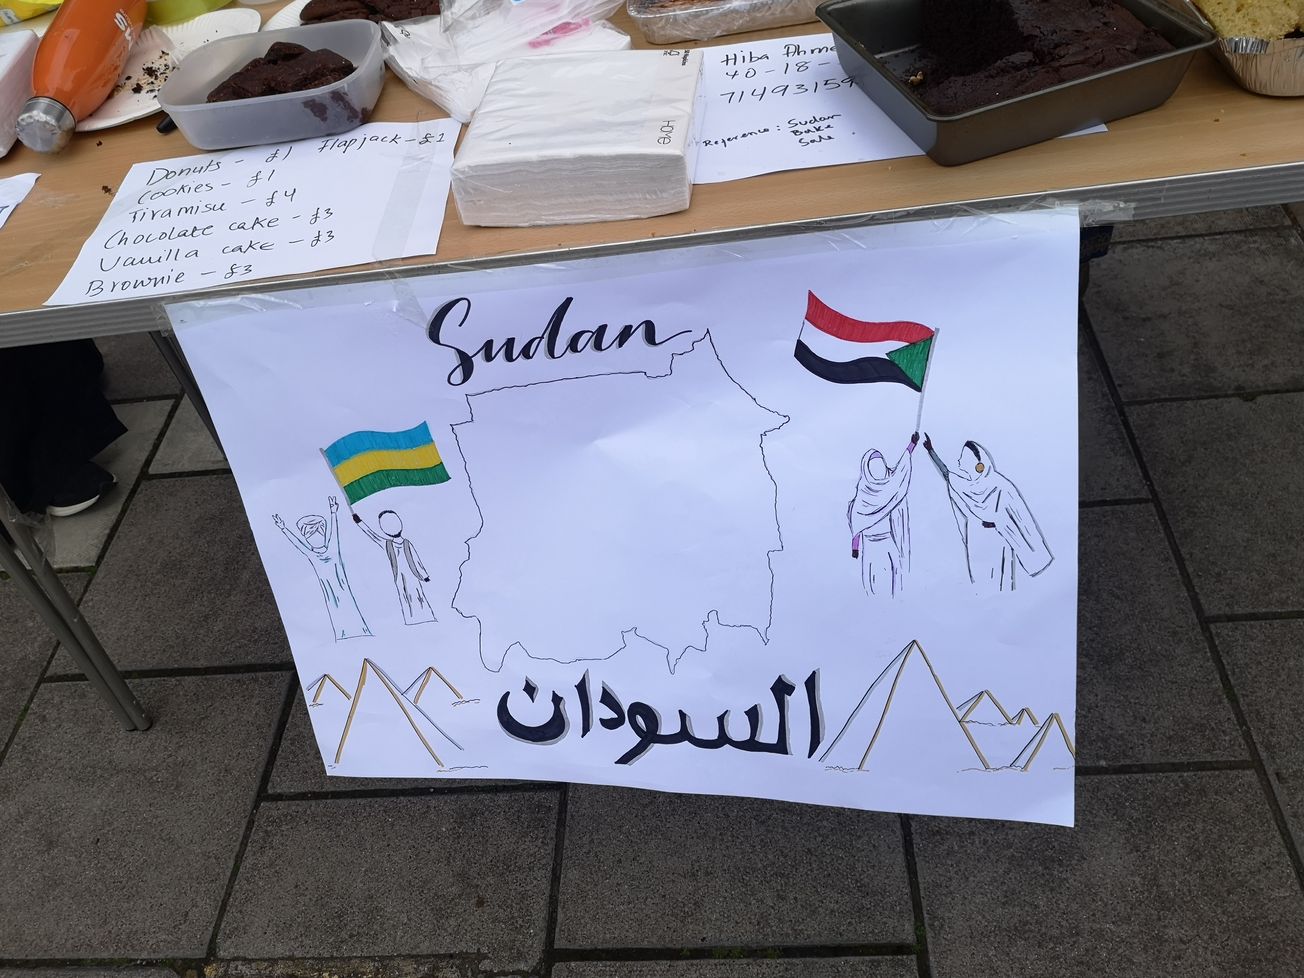 Donuts - £1 Flapjack - £1
Cookies - £1
Tiramisu - £4
Chocolate cake - £3
Vanilla cake - £3
Brownie - £3
HOME
Hiba Ahme
40-18-
71493159
Reference: Sudan
Bake
Sale.
Sudan
السودان